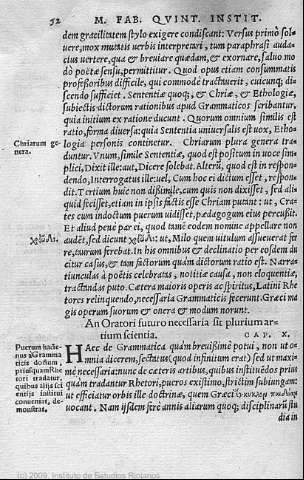 52 M. FAB. QVINT. INSTIT.
dem gracilitatem stylo exigere condiscant: Versus primò sol-
uere, mox mutatis verbis interpretari, tum paraphrasi auda-
cius vertere, qua & breuiare quædam, & exornare, saluo mo
dò poëtæ sensu, permittitur. Quod opus etiam consummatis
professoribus difficile, qui commodè tractauerit, cuicunq; di-
scendo sufficiet. Sententiæ quoq;, & Chriæ, & Ethologiæ,
subiectis dictorum rationibus apud Grammaticos scribantur,
quia initium ex ratione ducunt. Quorum omnium similis est
ratio, forma diuersa: quia Sententia vniuersalis est vox, Etho-
Chriarum ge
nera.
logia personis continetur. Chriarum plura genera tra-
duntur. Vnum, simile Sententiæ, quod est positum in voce simpli-
ci, Dixit ille: aut, Dicere solebat. Alterū, quod est in respon-
dendo, Interrogatus ille: vel, Cum hoc ei dictum esset, respon-
dit. Tertium huic non dißimile, cum quis non dixisset, sed ali-
quid fecisset, etiam in ipsis factis esse Chriam putant: vt, Cra-
tes cum indoctum puerum vidisset, pædagogum eius percußit.
Et aliud penè par ei, quod tamē eodem nomine appellare non
audēt, sed dicunt
vt, Milo quem vitulum assueuerat fer
re, taurum ferebat. In his omnibus & declinatio per eosdem du
citur casus, & tam factorum quàm dictorum ratio est. Narra-
tiunculas à poëtis celebratas, notitiæ causa, non eloquentiæ,
tractandas puto. Cætera maioris operis ac spiritus, Latini Rhe
tores relinquendo, necessaria Grammaticis fecerunt. Græci ma
gis operum suorum & onera & modum norunt.
An Oratori futuro necessaria sit plurium ar-
tium scientia. CAP. X.
Puerum trade-
dus
Grammaticis doctum,
priusquam Rhe
tori tradatur,
quibus
instituendus
HAec de Grammatica quàm breuißimè potui, non vt o-
mnia dicerem, sectatus (quod infinitum erat) sed vt maxi-
mè necessaria: nunc de cæteris artibus, quibus instituēdos prius
quàm tradantur Rhetori, pueros existimo, strictim subiungam:
vt efficiatur orbis ille doctrinæ, quem Græci
vocant. Nam ijsdem ferè annis aliarum quoq; disciplinarū stu
dia in
(c) 2009, Instituto de Estudios Riojanos